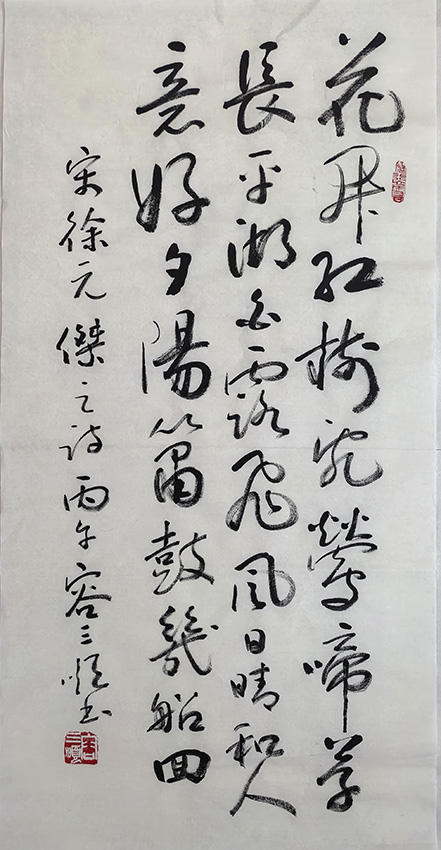 花開紅樹亂鶯啼草
長平湖白露飛風日晴和人
意好夕陽簫鼓幾船回
宋徐元傑之詩丙午容三順書
容三順